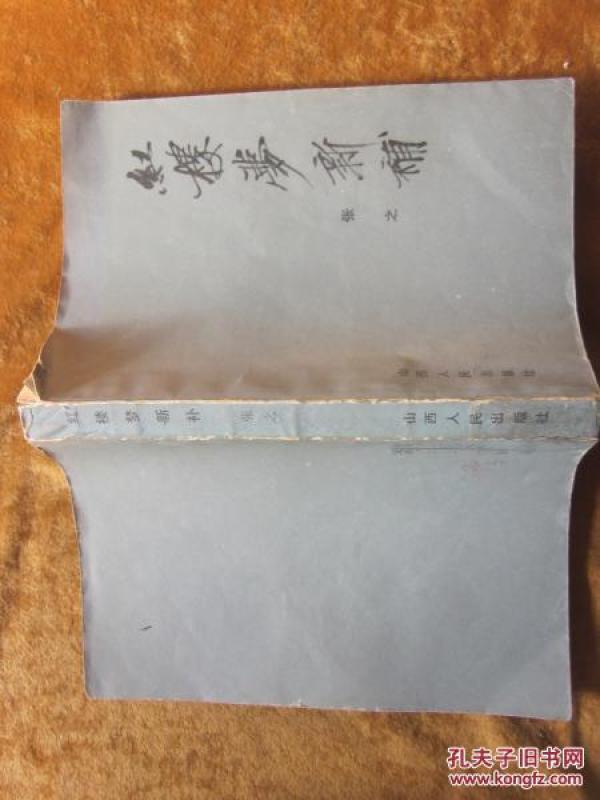 紅樓夢新補
张之
山西人民出版社
红楼梦新补 张之 山西人民出版社
孔夫子旧书网
www.kongfz.com